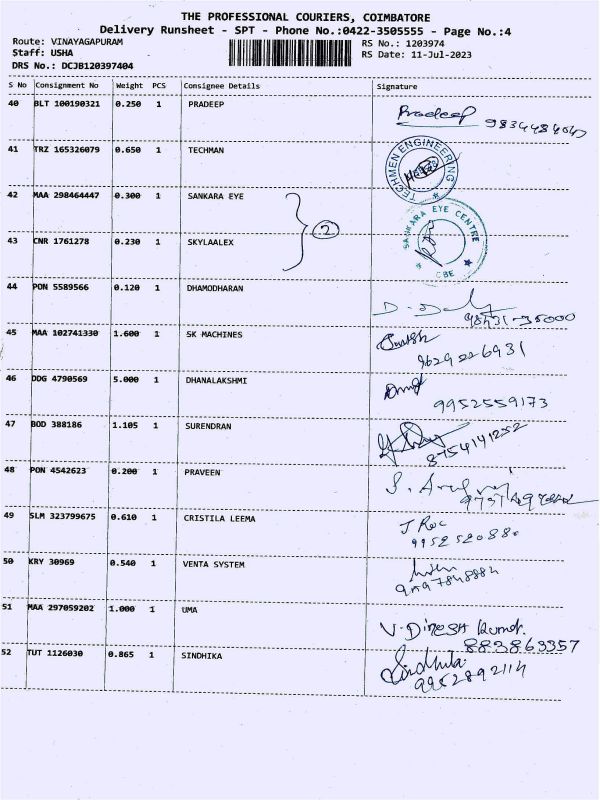 THE PROFESSIONAL COURIERS, COIMBATORE
Delivery Runsheet - SPT - Phone No.:0422-3505555 - Page No.:4
Route: VINAYAGAPURAM
RS No.: 1203974
Staff: USHA
RS Date: 11-Jul-2023
DRS No.: DCJB120397404
S No Consignment No Weight PCS Consignee Details Signature
40 BLT 100190321 0.250 1 PRADEEP Pradeep
41 TRZ 165326079 0.650 1 TECHMAN TECHMEN ENGINEERING
42 MAA 298464447 0.300 1 SANKARA EYE SANKARA EYE CENTRE CBE
2
43 CNR 1761278 0.230 1 SKYLAALEX
44 PON 5589566 0.120 1 DHAMODHARAN
45 MAA 102741330 1.600 1 SK MACHINES
9629526931
46 DDG 4790569 5.000 1 DHANALAKSHMI
9952559173
47 BOD 388186 1.105 1 SURENDRAN
8754141252
48 PON 4542623 0.200 1 PRAVEEN
49 SLM 323799675 0.610 1 CRISTILA LEEMA
9952520880
50 KRY 30969 0.540 1 VENTA SYSTEM
51 MAA 297059202 1.000 1 UMA V. Dinesh Kumar.
883863357
52 TUT 1126030 0.865 1 SINDHIKA Sindhika
9952892114